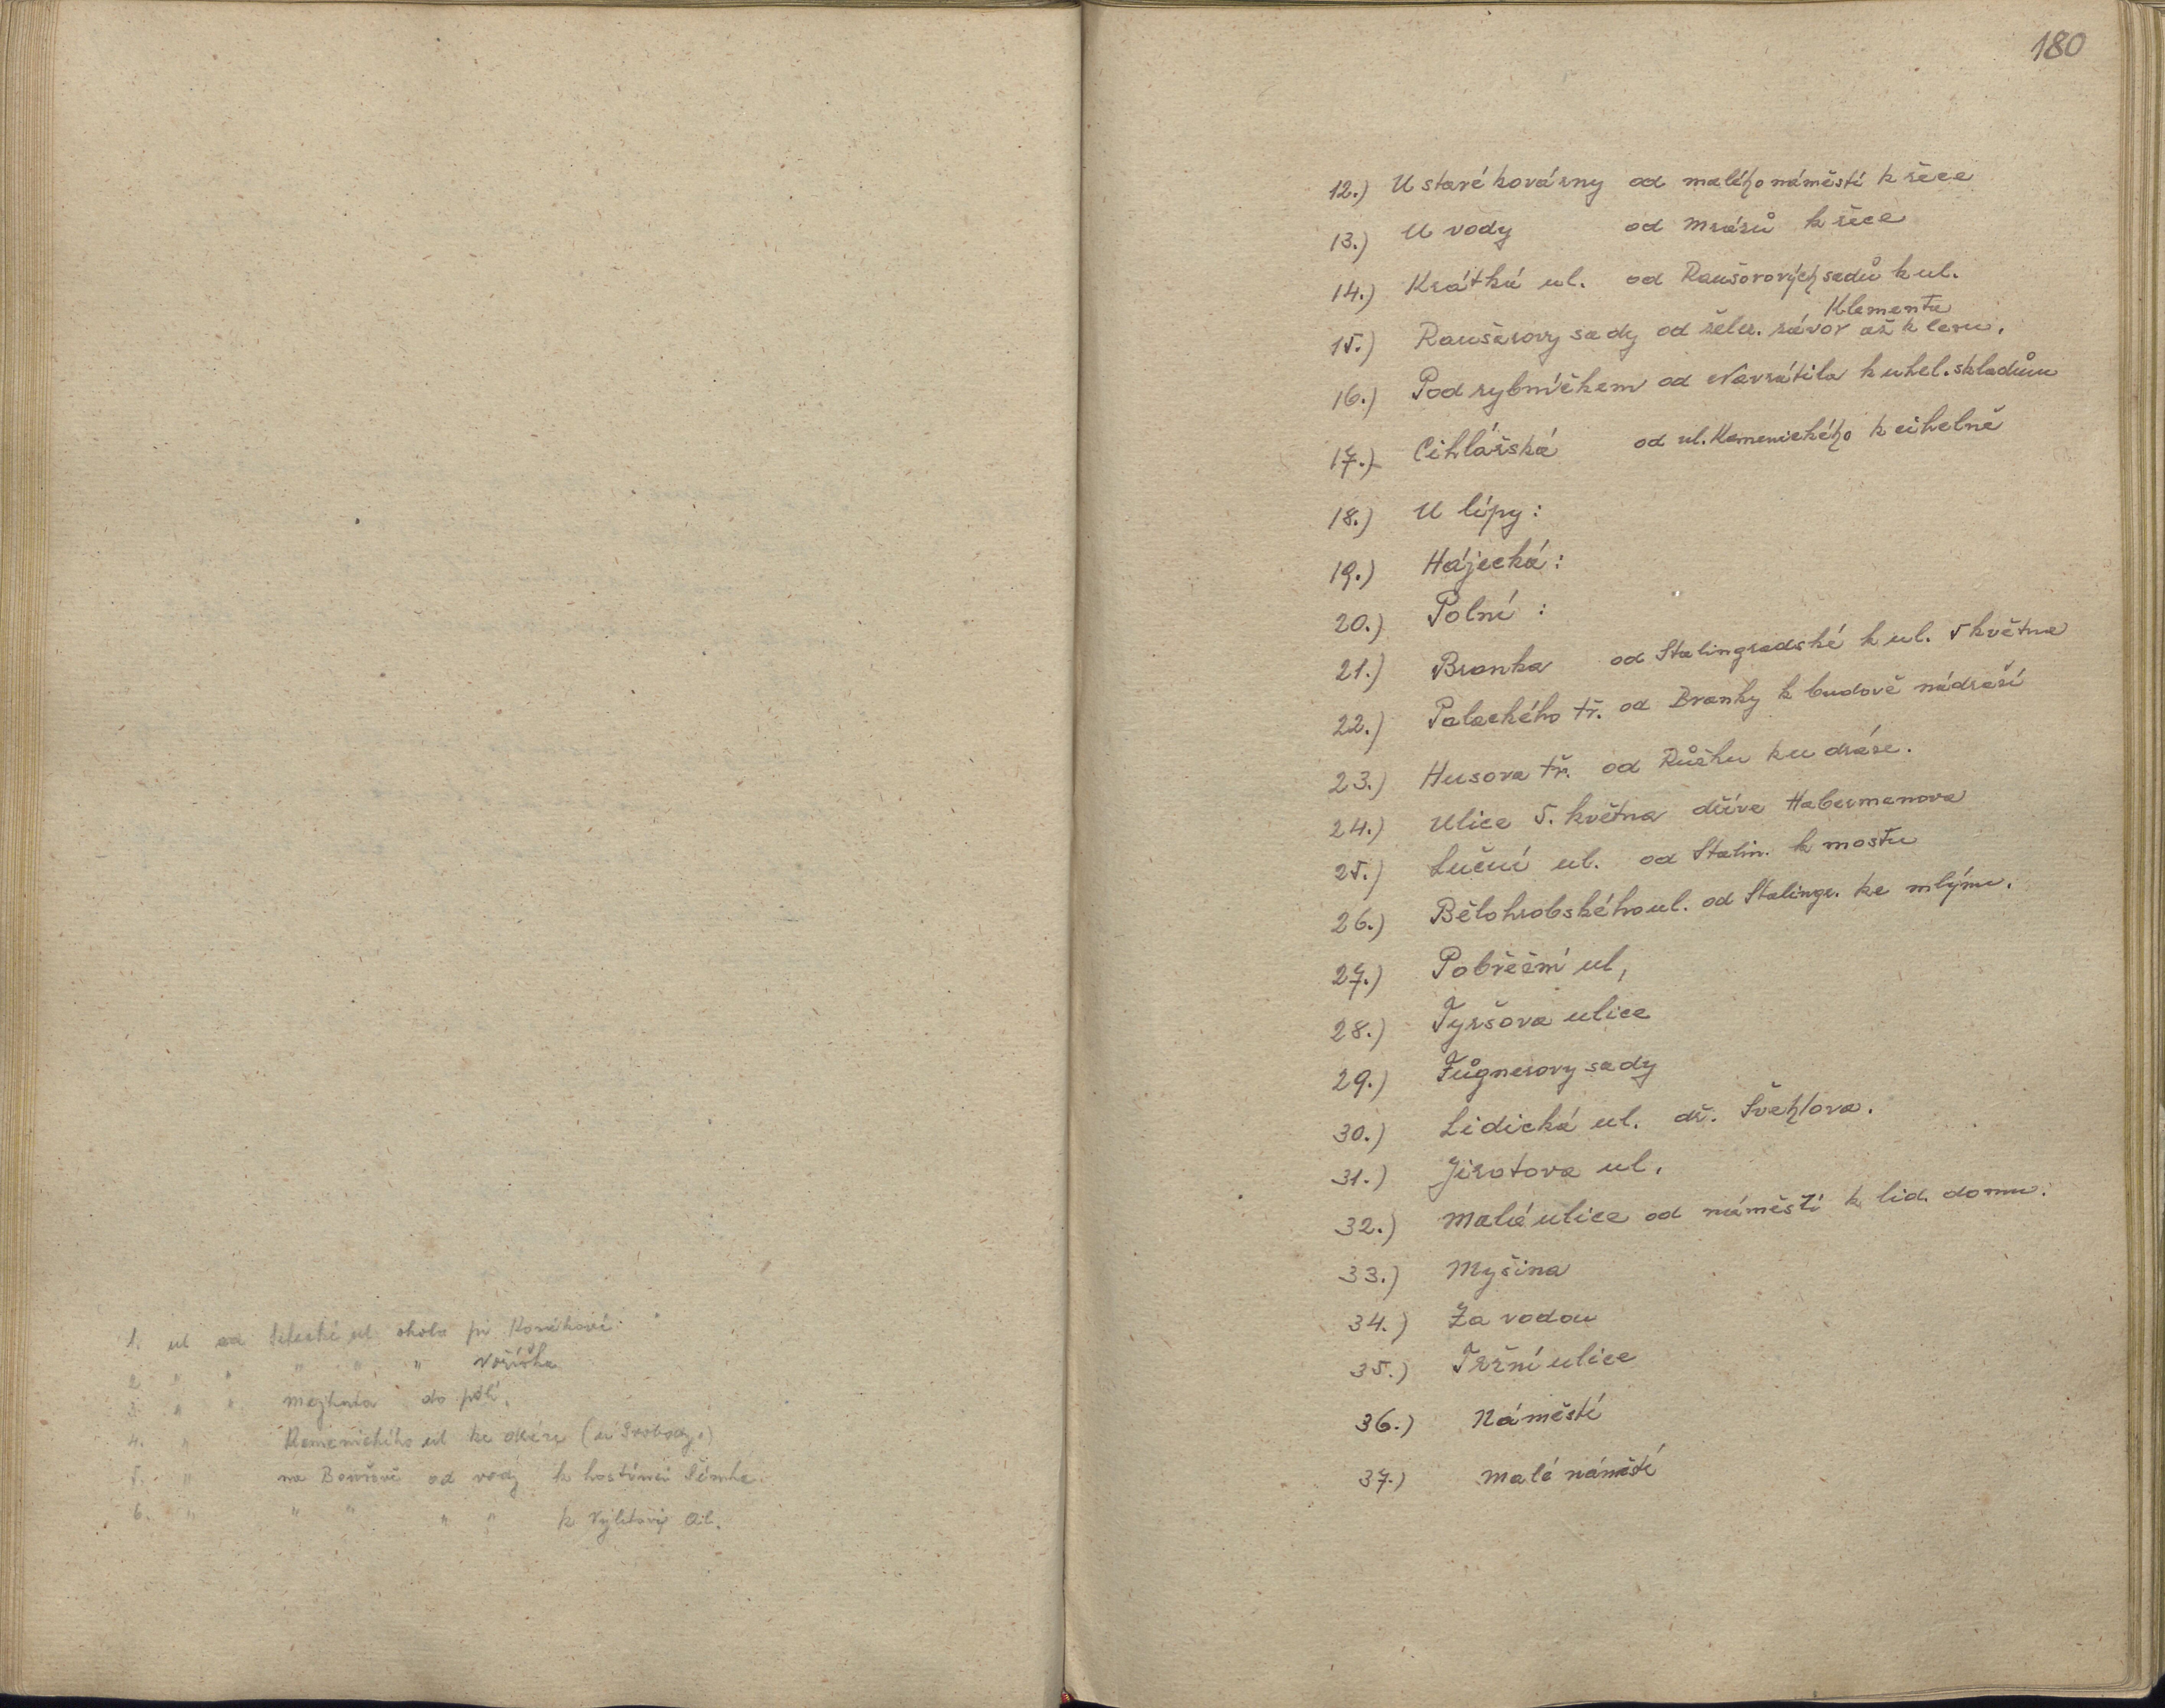 1. ul od ul okolo pí
2 " " " " " Voříška
3 " " mezkata do polí.
4. " Kamenického ul ke dráze (u Svobody.)
5. " na Boušově od vody k hostinci
6. " " " " " k
180
12.) U staré kovárny od malého náměstí k řece
13.) U vody od Mrázů k řece
14.) Krátká ul. od Raušerových sadů k ul.
Klementa
15.) Raušerovy sady od želez. závor až k lesu.
16.) Pod rybníčkem od Navrátila k uhel. skladům
17.) Cihlářská od ul. Kamenického k cihelně
18.) U lípy:
19.) Hájecká:
20.) Polní :
21.) Branka od Stalingradské k ul. 5 května
22.) Palackého tř. od Branky k budově nádraží
23.) Husova tř. od Růžku ku dráze.
24.) Ulice 5. května dříve Habermanova
25.) Luční ul. od Stalin. k mostu
26.) Bělohrobského ul. od Stalingr. ke mlýnu.
27.) Pobřežní ul,
28.) Tyršova ulice
29.) Fůgnerovy sady
30.) Lidická ul. dř. Švehlova.
31.) Jirotova ul.
32.) Malá ulice od náměstí k lid. domu.
33.) Myšina
34.) Za vodou
35.) Tržní ulice
36.) Náměstí
37.) Malé náměstí